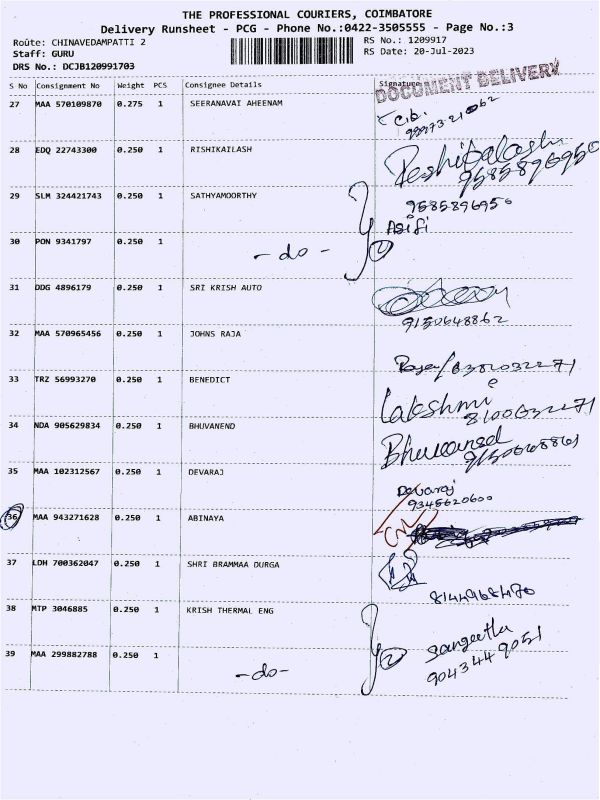 THE PROFESSIONAL COURIERS, COIMBATORE
Delivery Runsheet - PCG - Phone No.:0422-3505555 - Page No.:3
Route: CHINAVEDAMPATTI 2 RS No.: 1209917
Staff: GURU RS Date: 20-Jul-2023
DRS No.: DCJB120991703
S No Consignment No Weight PCS Consignee Details Signature
DOCUMENT DELIVERY
27 MAA 570109870 0.275 1 SEERANAVAI AHEENAM
28 EDQ 22743300 0.250 1 RISHIKAILASH
9585896950
29 SLM 324421743 0.250 1 SATHYAMOORTHY
9585896950
Asifi
30 PON 9341797 0.250 1 -do- 2
31 DDG 4896179 0.250 1 SRI KRISH AUTO
9150648862
32 MAA 570965456 0.250 1 JOHNS RAJA
33 TRZ 56993270 0.250 1 BENEDICT
Lakshmi
34 NDA 905629834 0.250 1 BHUVANEND
35 MAA 102312567 0.250 1 DEVARAJ
Devaraj
9345620600
36 MAA 943271628 0.250 1 ABINAYA
37 LDH 700362047 0.250 1 SHRI BRAMMAA DURGA
8144968470
38 MTP 3046885 0.250 1 KRISH THERMAL ENG
Sangeetha
9043449051
39 MAA 299882788 0.250 1 -do- 2